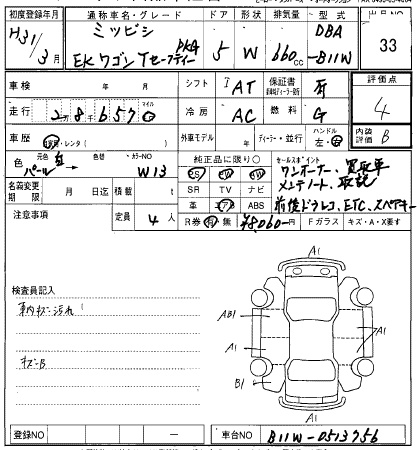 初度登録年月 通称車名・グレード ドア 形状 排気量 型式
H31/3月 ミツビシ eKワゴン Tセーフティー PKG 5 W 660cc DBA-B11W 33
車検 年 月 シフト IAT 保証書 有 評価点
走行 2万8千657 マイル 冷房 AC 燃料 G 4
車歴 自家用・レンタ 外車モデル 年 ディーラー・並行 ハンドル 左・右 内装評価 B
色 元色 白パール 色替 カラーNO W13 純正品に限り○ セールスポイント
PS PW SW ワンオーナー、買取車
名義変更期限 月 日迄 積載 t SR TV ナビ メンテノート、取説
革 エアB ABS 前後ドラレコ、ETC、スペアキー
注意事項 定員 4人 R券 有・無 ¥8,060円 Fガラス キズ・A・X要す
A1
検査員記入
車内キズ汚れ AB1 A1
A1 A1
キズB B1
A1
登録NO ー 車台NO B11W-0513756